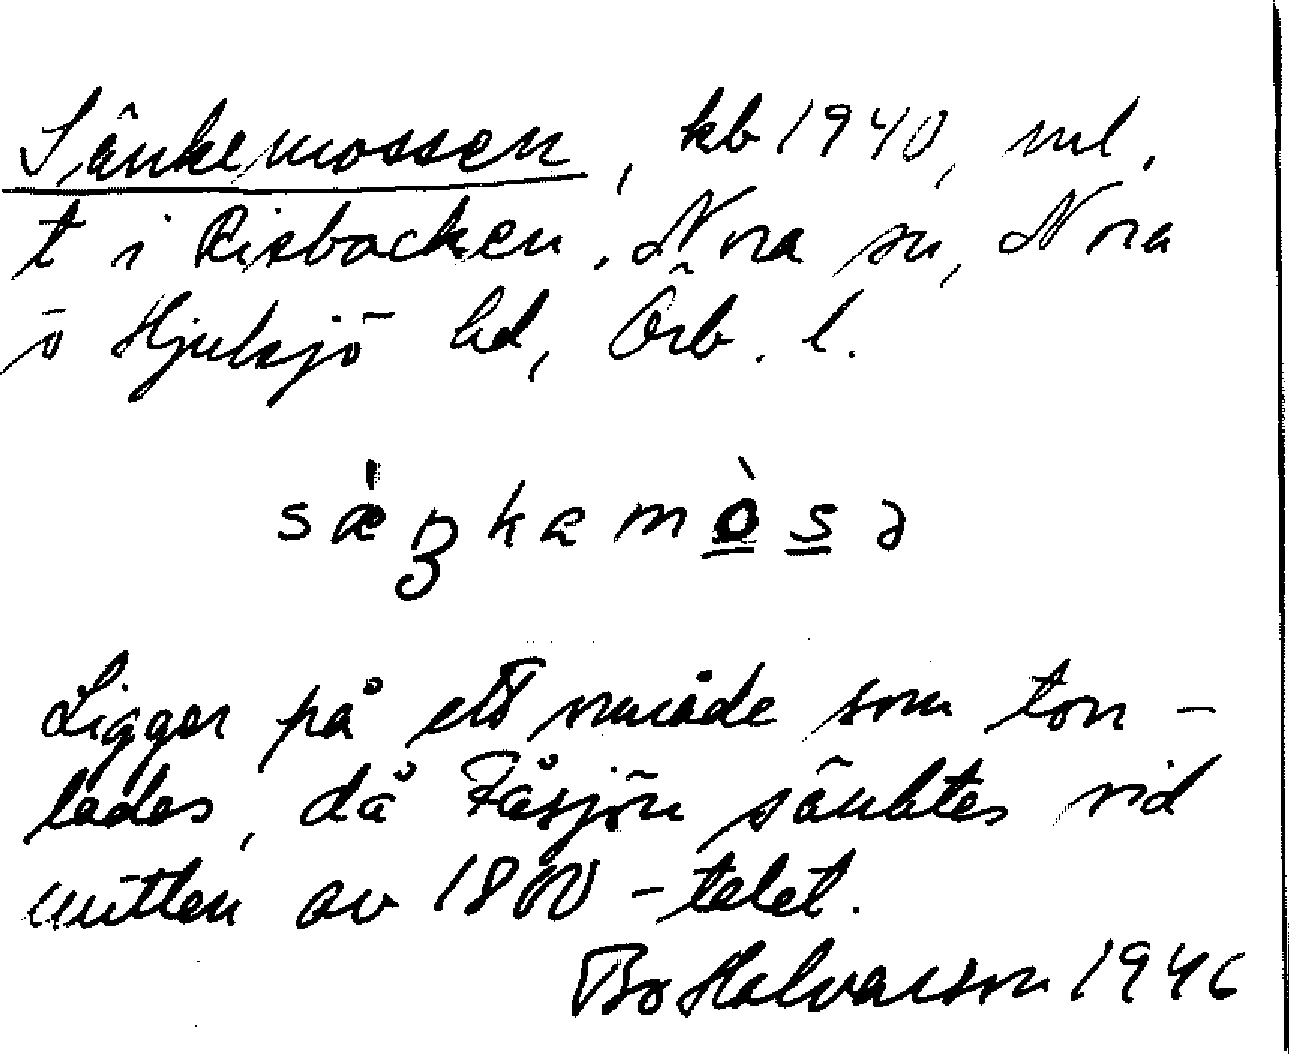 Sänkemossen, kb 1940, ml.
t i Risbacken. Nora sn, Nora
o Hjulsjö bd, Örb. l.
sæŋkamòsə
Ligger på ett område som torr-
lades, då Fåsjön sänktes vid
mitten av 1800-talet.
Bo Halvarson 1946